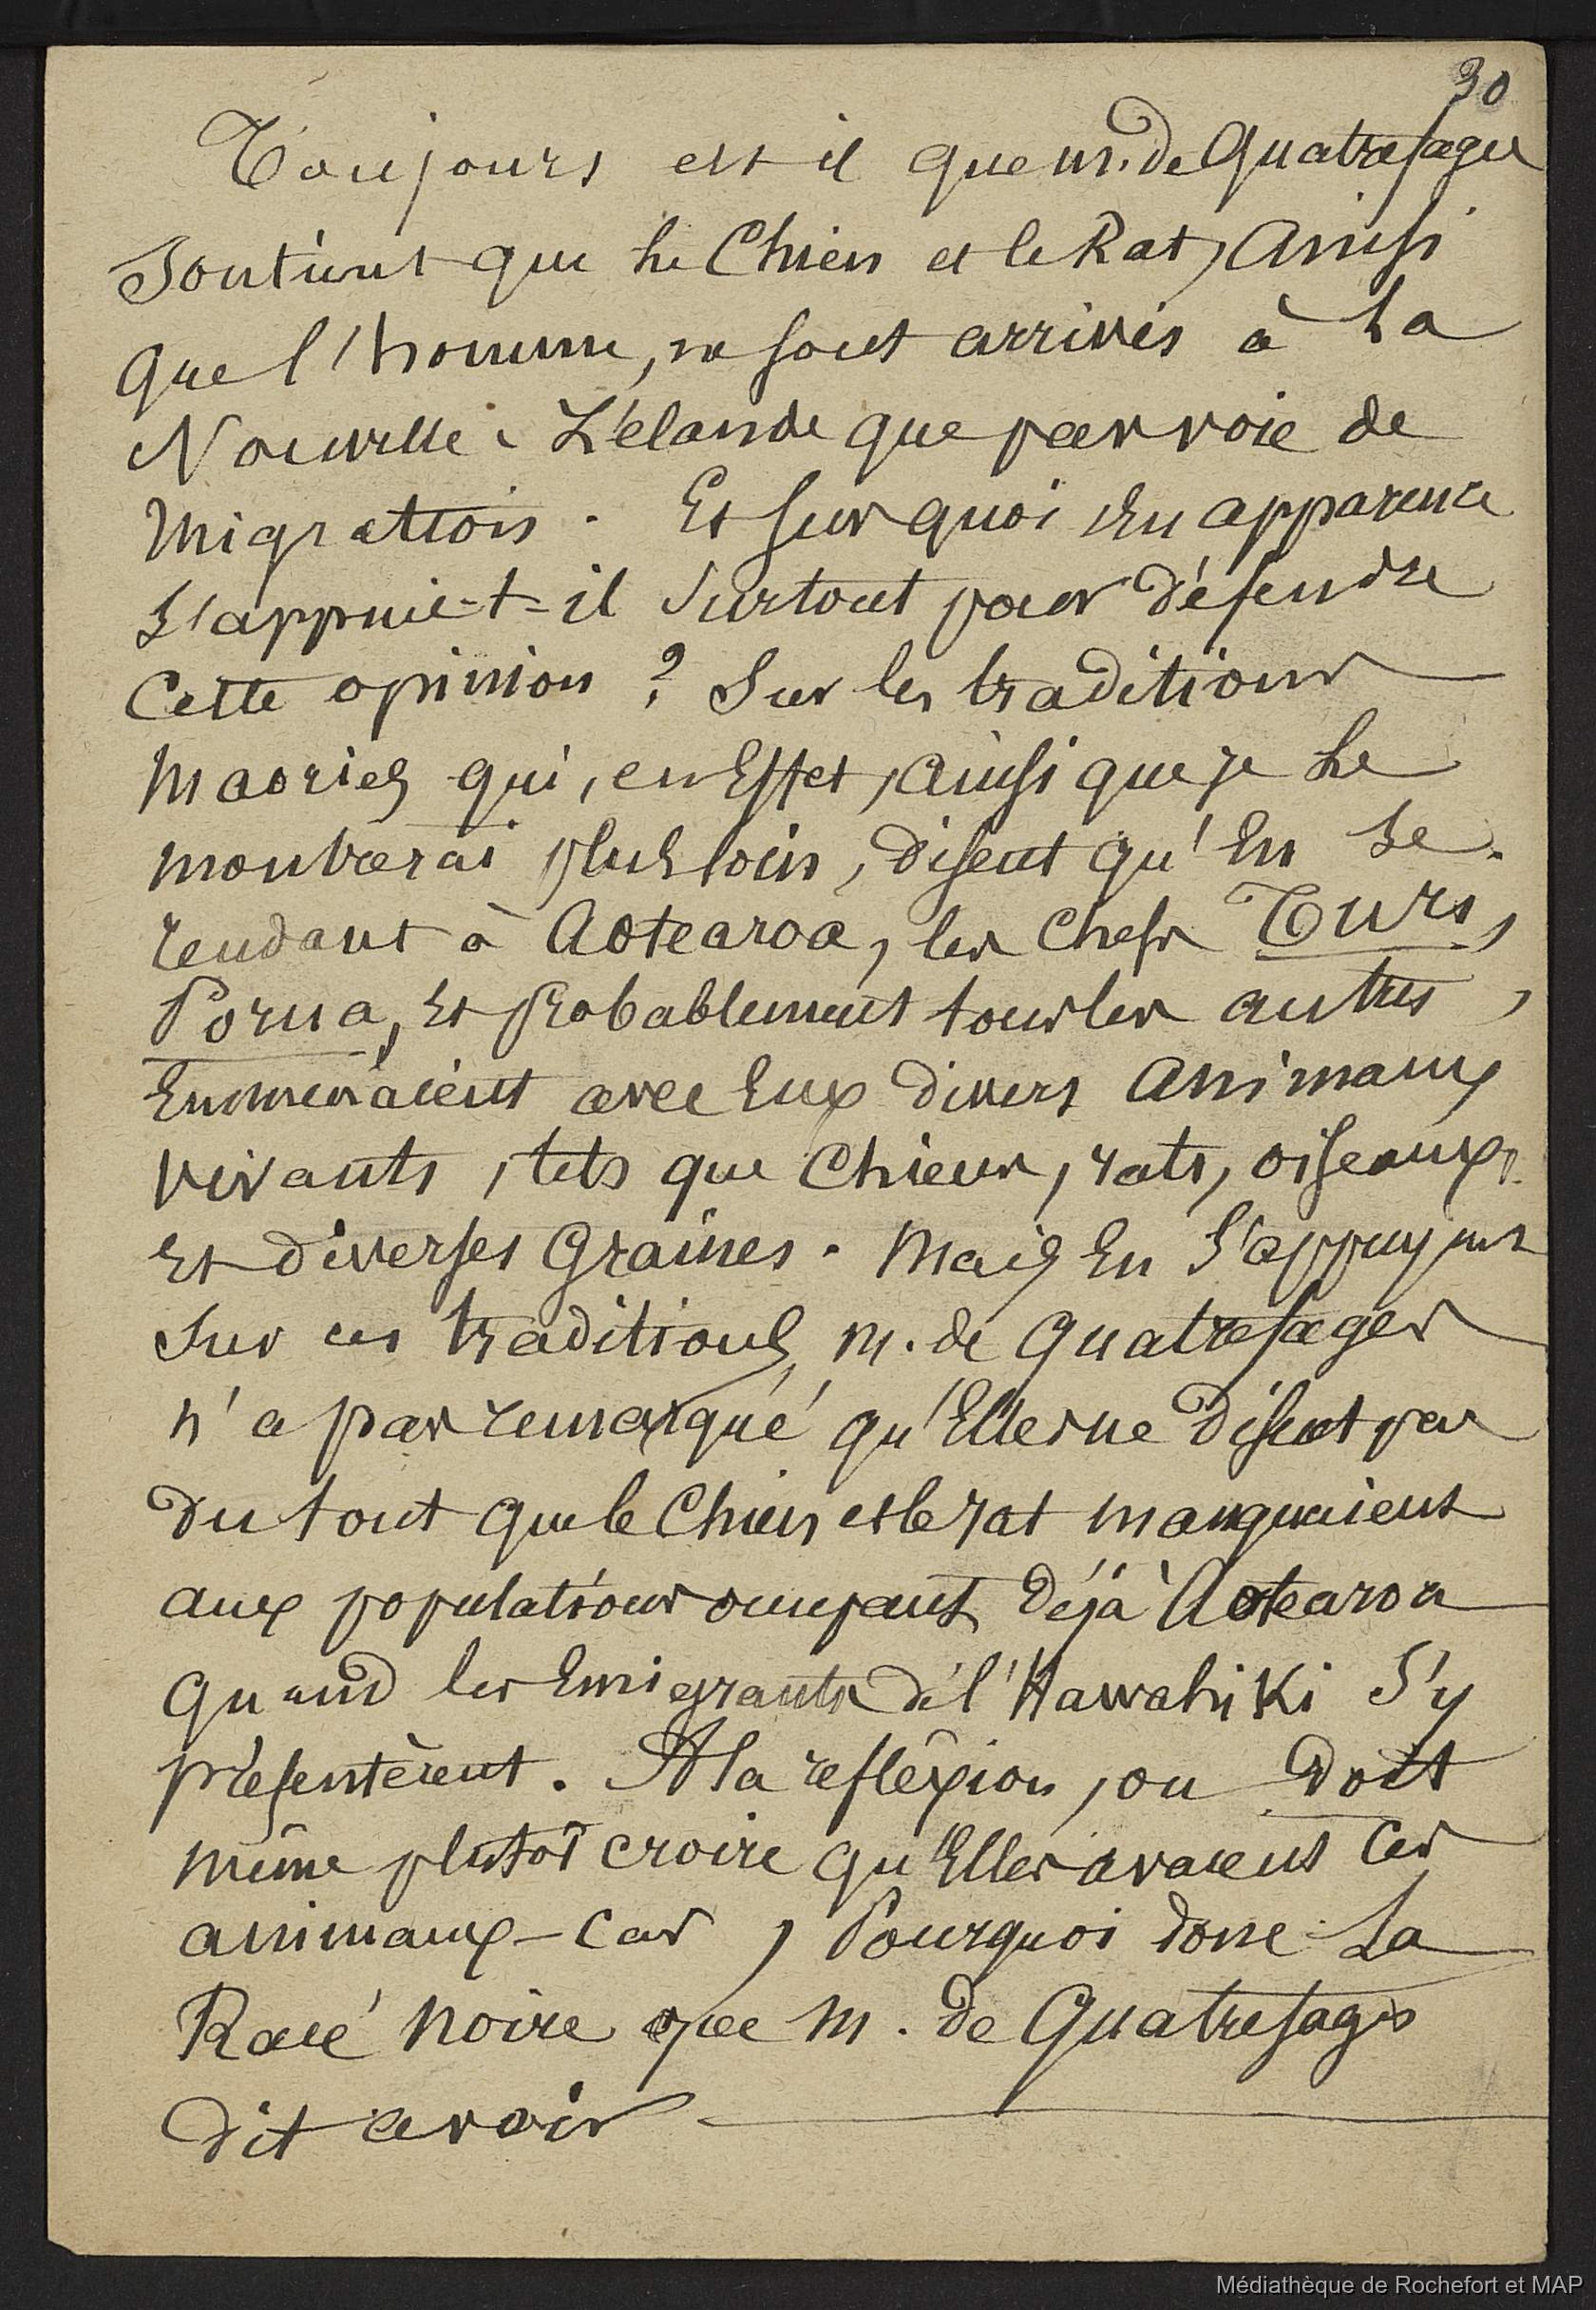 30
Toujours est il que M. de Quatrefages
Soutient que le Chien et le Rat, Ainsi
que l'homme, ne sont arrivés à la
Nouvelle-Zélande que par voie de
Migration. Et sur quoi en apparence
S'appuie-t-il surtout pour défendre
Cette opinion ? Sur les traditions
Maories qui, en Effet, ainsi que je le
montrerai plus loin, disent qu'En se
rendant à Aotearoa, les Chefs Turi,
Porua, Et Probablement tous les autres,
Emmenaient avec Eux divers Animaux
vivants, tels que Chiens, rats, oiseaux,
Et diverses Graines. Mais En S'appuyant
sur ces traditions, M. de Quatrefages
n'a pas remarqué qu'Elles ne disent pas
du tout que le Chien et le rat manquaient
aux populations occupant déjà Aotearoa
quand les Emigrants de l'Hawahiki S'y
présentèrent. A la réflexion, on doit
même plutôt croire qu'Elles avaient Ces
animaux - Car, Pourquoi donc la
Race noire que M. de Quatrefages
dit avoir
Médiathèque de Rochefort et MAP